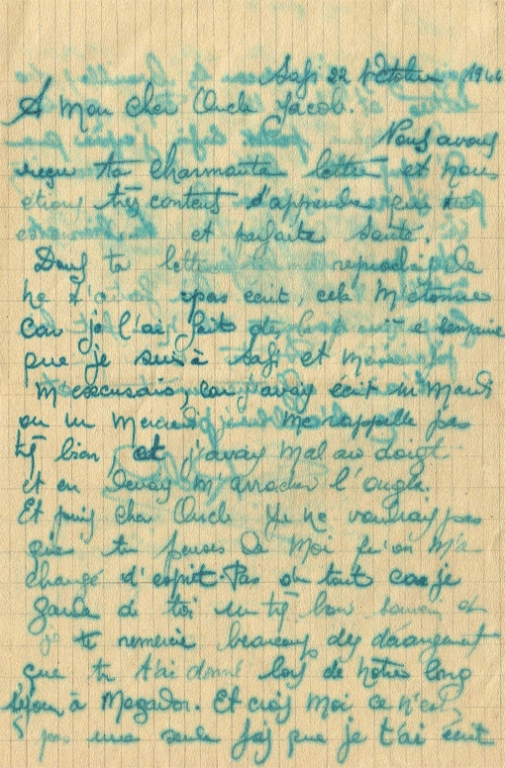 Safi 22 Octobre 1944
A Mon cher Oncle Jacob.
Nous avons
reçu ta charmante lettre et nous
etions très contents d'apprendre que
et parfaite santé.
Dans ta lettre me reprochais de
ne t'avoir pas ecrit, cela M'étonne
car je l'ai fait de semaine
que je suis à Safi et Même je
M'excusais, car j'avais écrit un Mardi
ou un Mercredi je ne Me rappelle pas
très bien, et j'avais Mal au doigt
et on devait M'arracher l'ongle.
Et puis cher Oncle Je ne voudrais pas
que tu penses de Moi qu'on M'a
changé d'esprit. Pas du tout car je
garde de toi un très bon souvenir et
je te remercie beaucoup des dérangement
que tu t'ai donné lors de notre long
séjour à Mogador. Et crois Moi ce n'est
pas une seule fois que je t'ai écrit